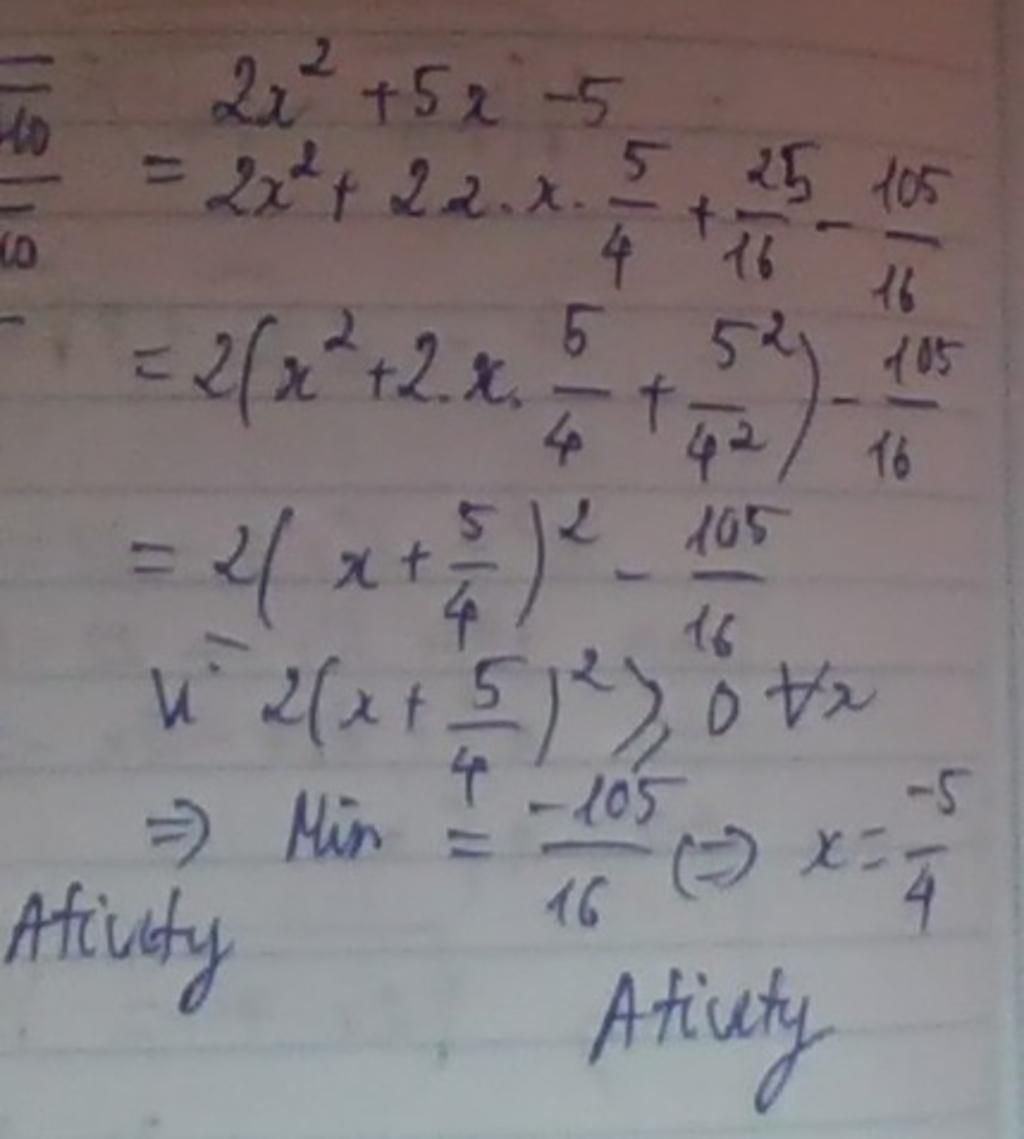 2x² + 5x - 5
= 2x² + 2 2 . x . 5/4 + 25/16 - 105/16
= 2(x² + 2 . x . 5/4 + 5²/4²) - 105/16
= 2( x + 5/4 )² - 105/16
Vì 2(x + 5/4)² ⩾ 0 ∀x
⇒ Min = -105/16 (⇒) x = -5/4
Ativity
Ativity